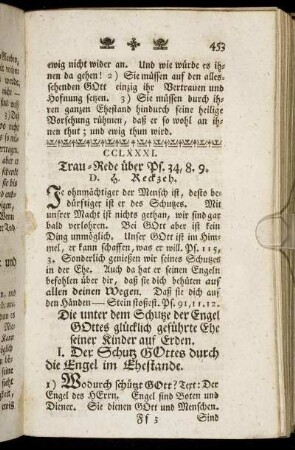 453
ewig nicht wider an. Und wie würde es ih-
nen da gehen! 2) Sie müssen auf den alles-
sehenden GOtt einzig ihr Vertrauen und
Hofnung setzen. 3) Sie müssen durch ih-
ren ganzen Ehestand hindurch seine heilige
Vorsehung rühmen, daß er so wohl an ih-
nen thut; und ewig thun wird.
CCLXXXI.
Trau-Rede über Ps. 34, 8. 9.
D. H. Reckzeh.
Je ohnmächtiger der Mensch ist, desto be-
dürftiger ist er des Schutzes. Mit
unsrer Macht ist nichts gethan, wir sind gar
bald verlohren. Bei GOtt aber ist kein
Ding unmöglich. Unser GOtt ist im Him-
mel, er kann schaffen, was er will. Ps. 115,
3. Sonderlich genießen wir seines Schutzes
in der Ehe. Auch da hat er seinen Engeln
befohlen über dir, daß sie dich behüten auf
allen deinen Wegen. Daß sie dich auf
den Händen — Stein stoßest. Ps. 91, 11. 12.
Die unter dem Schutze der Engel
GOttes glücklich geführte Ehe
seiner Kinder auf Erden.
I. Der Schutz GOttes durch
die Engel im Ehestande.
1) Wodurch schützt GOtt? Text: Der
Engel des HErrn. Engel sind Boten und
Diener. Sie dienen GOtt und Menschen.
Ff 3 Sind